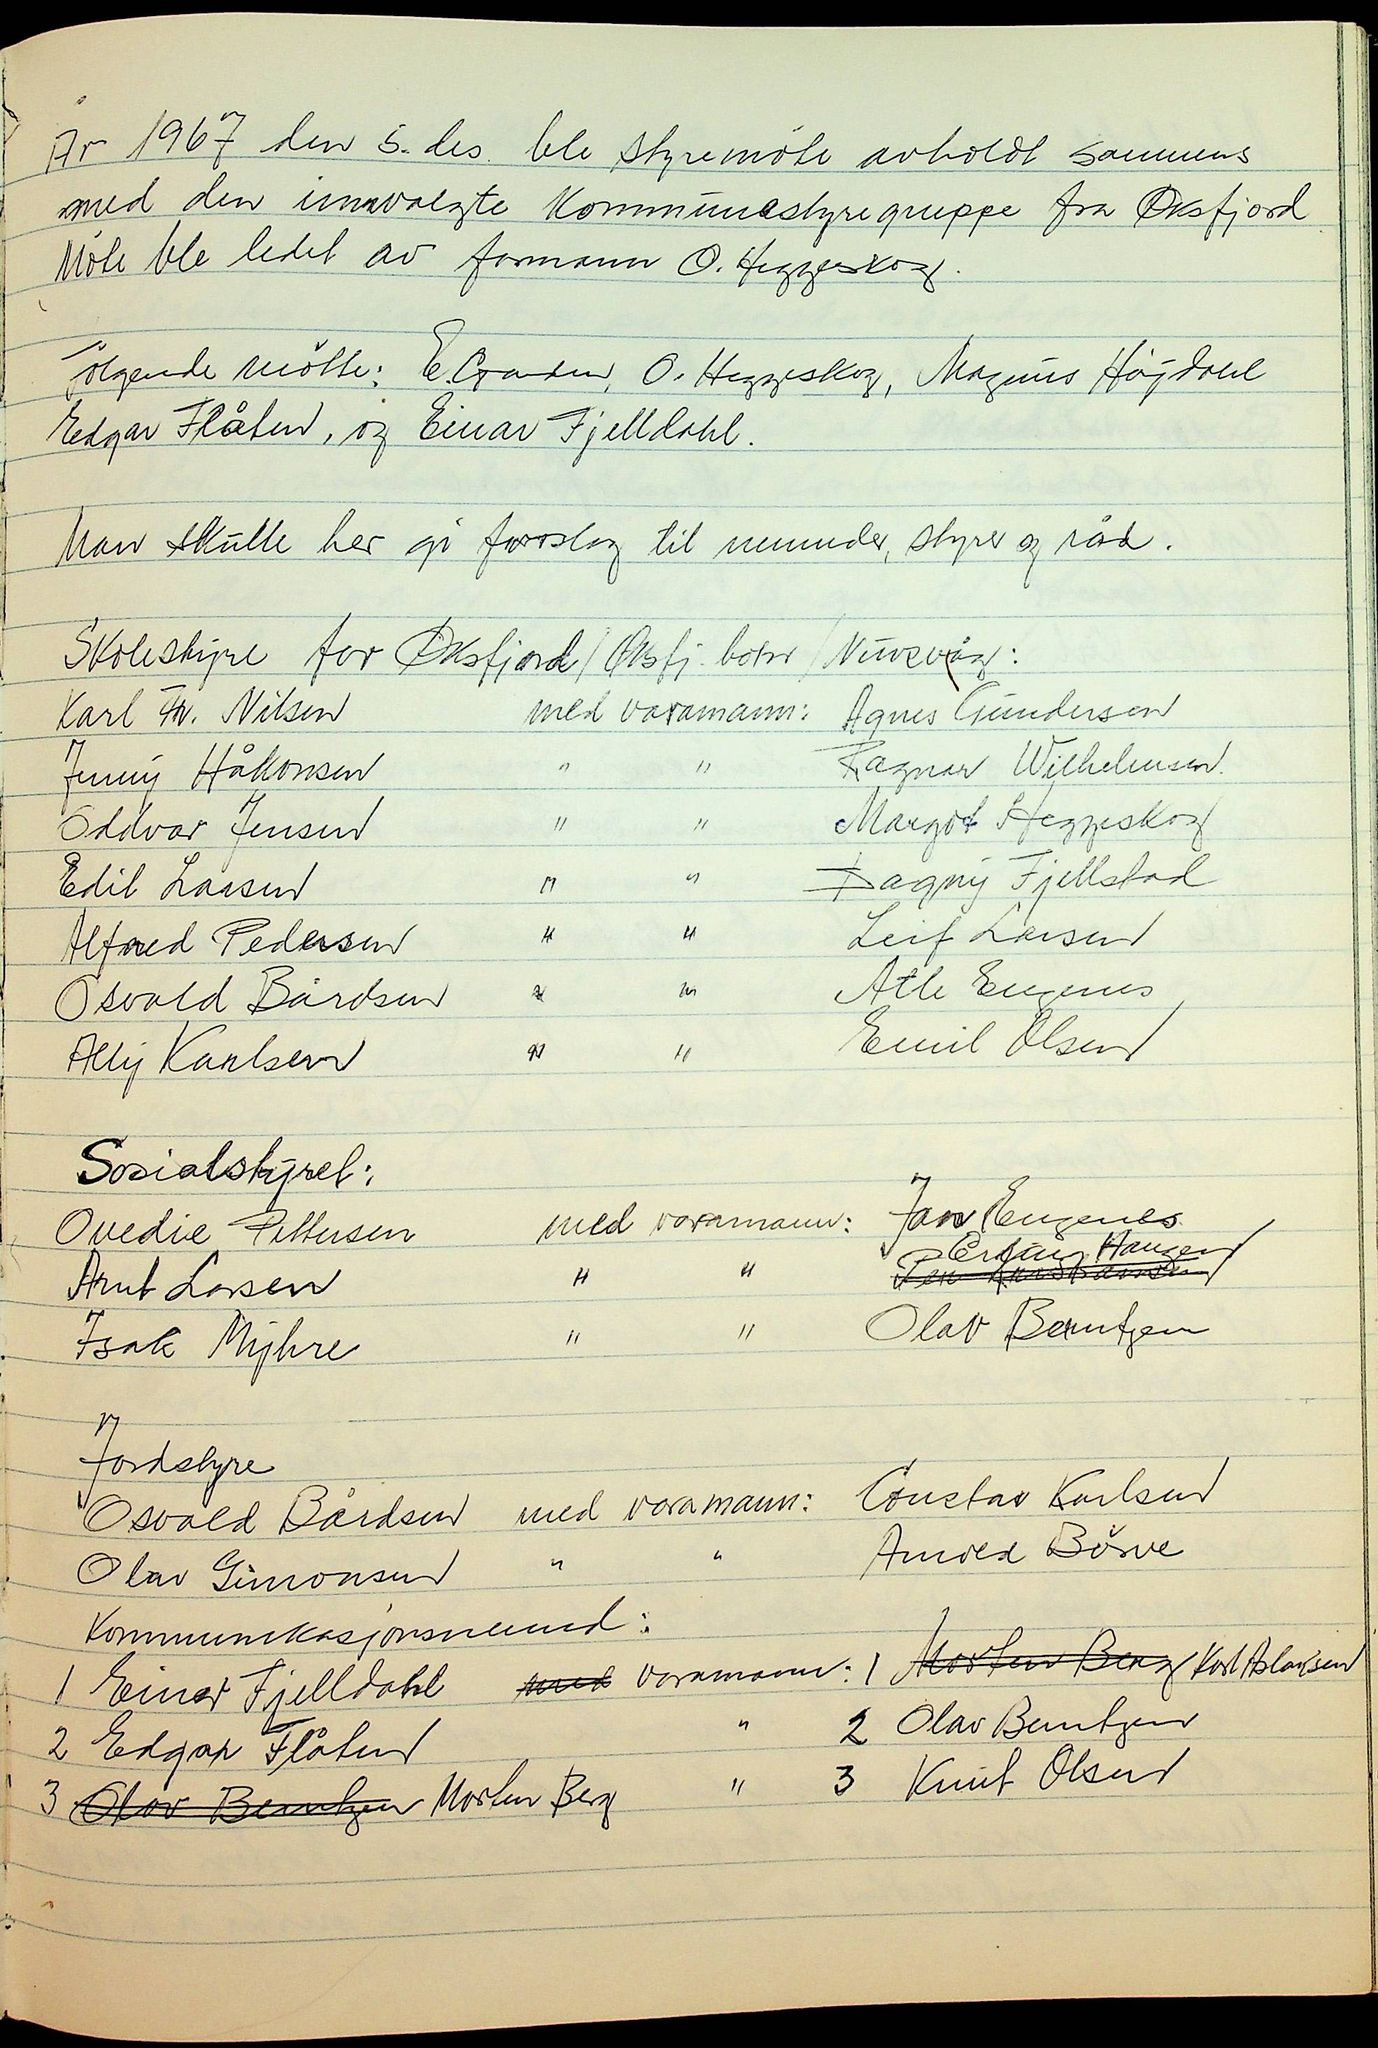 År 1967 den 5. des. ble styremöte avholdt sammens
med den innvalgte Kommunestyregruppe fra Øksfjord
Möte ble ledet av formann O. Heggeskog.
Følgende mötte: E. O. Heggeskog, Magnus Høydahl
Edgar Flåten, og Einar Fjelldahl.
Man skulle her gi forslag til nemnder, styrer og råd.
Skolestyre for Øksfjord / Øksfj. botn / Nuvsvåg:
Karl Fr. Nilsen med varamann: Agnes Gundersen
Jenny Håkonsen " " Ragnar Wilhelmsen.
Oddvar Jensen " " Margot Heggeskog
Edit Larsen " " Dagny Fjellstad
Alfred Pedersen " " Leif Larsen
Osvald Bårdsen " " Atle Eugenes
Ally Karlsen " " Emil Olsen
Sosialstyret:
Ovedie Pettersen med varamann: Jan Eugenes
Erling Hansen
Arnt Larsen " "
Isak Myhre " " Olav Berntzen
Jordstyre
Osvald Bårdsen med varamann: Gustav Karlsen
Olav Simonsen " " Arnold Börve
Kommunikasjonsnemnd:
1 Einar Fjelldahl med varamann: 1 Morten Berg Karl Aslaksen
2 Edgar Flåten " 2 Olav Berntzen
3 Olav Berntzen Morten Berg " 3 Knut Olsen